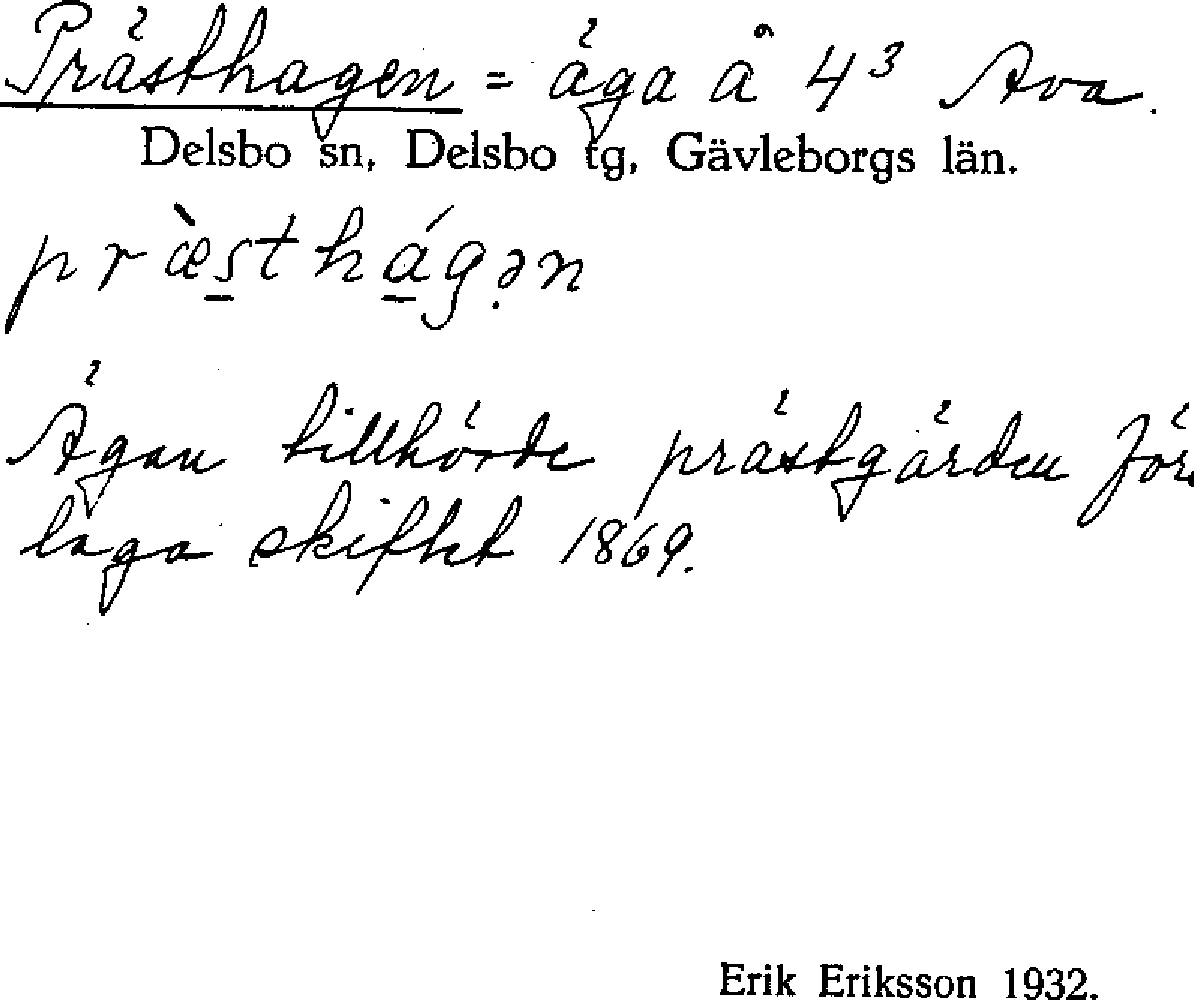 Prästhagen = äga å 4³ Ava.
Delsbo sn, Delsbo tg, Gävleborgs län.
præ̀s̲thá̲gə̣n
Ägan tillhörde prästgården före
laga skiftet 1869.
Erik Eriksson 1932.